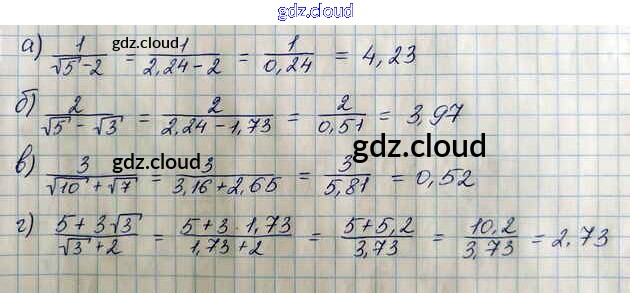 gdz.cloud
а) 1/(√5 - 2) = 1/(2,24 - 2) = 1/0,24 = 4,23
gdz.cloud
б) 2/(√5 - √3) = 2/(2,24 - 1,73) = 2/0,51 = 3,97
gdz.cloud
в) 3/(√10 + √7) = 3/(3,16 + 2,65) = 3/5,81 = 0,52
gdz.cloud
г) (5 + 3√3)/(√3 + 2) = (5 + 3 · 1,73)/(1,73 + 2) = (5 + 5,2)/3,73 = 10,2/3,73 = 2,73
gdz.cloud